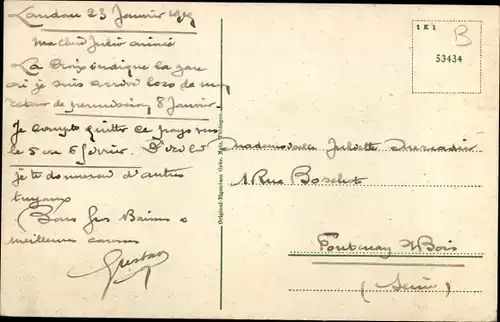 Landau 23 Janvier 1919
Ma chère Julie aimée
La Croix indique la gare
où je suis arrivé lors de mon
retour de permission, 8 Janvier.
Je compte quitter ce pays vers
le 5 ou 6 février. D'
je te donnerai d'autres
tuyaux
Bons Gros Baisers &
meilleures
Gustav
1 K 1
B
53434
Mademoiselle Juliette
1 Rue Boschot
Fontenay s/ Bois
(Seine)
Original-Eigentum Gebr. Metz, Tübingen.